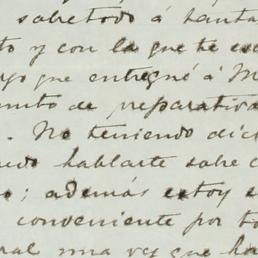 sobre todo á
to y con la que te
go que entregué á M
de preparativ
. No teniendo
hablarte sobre
o; además estoy
conveniente por to
una vez que ha